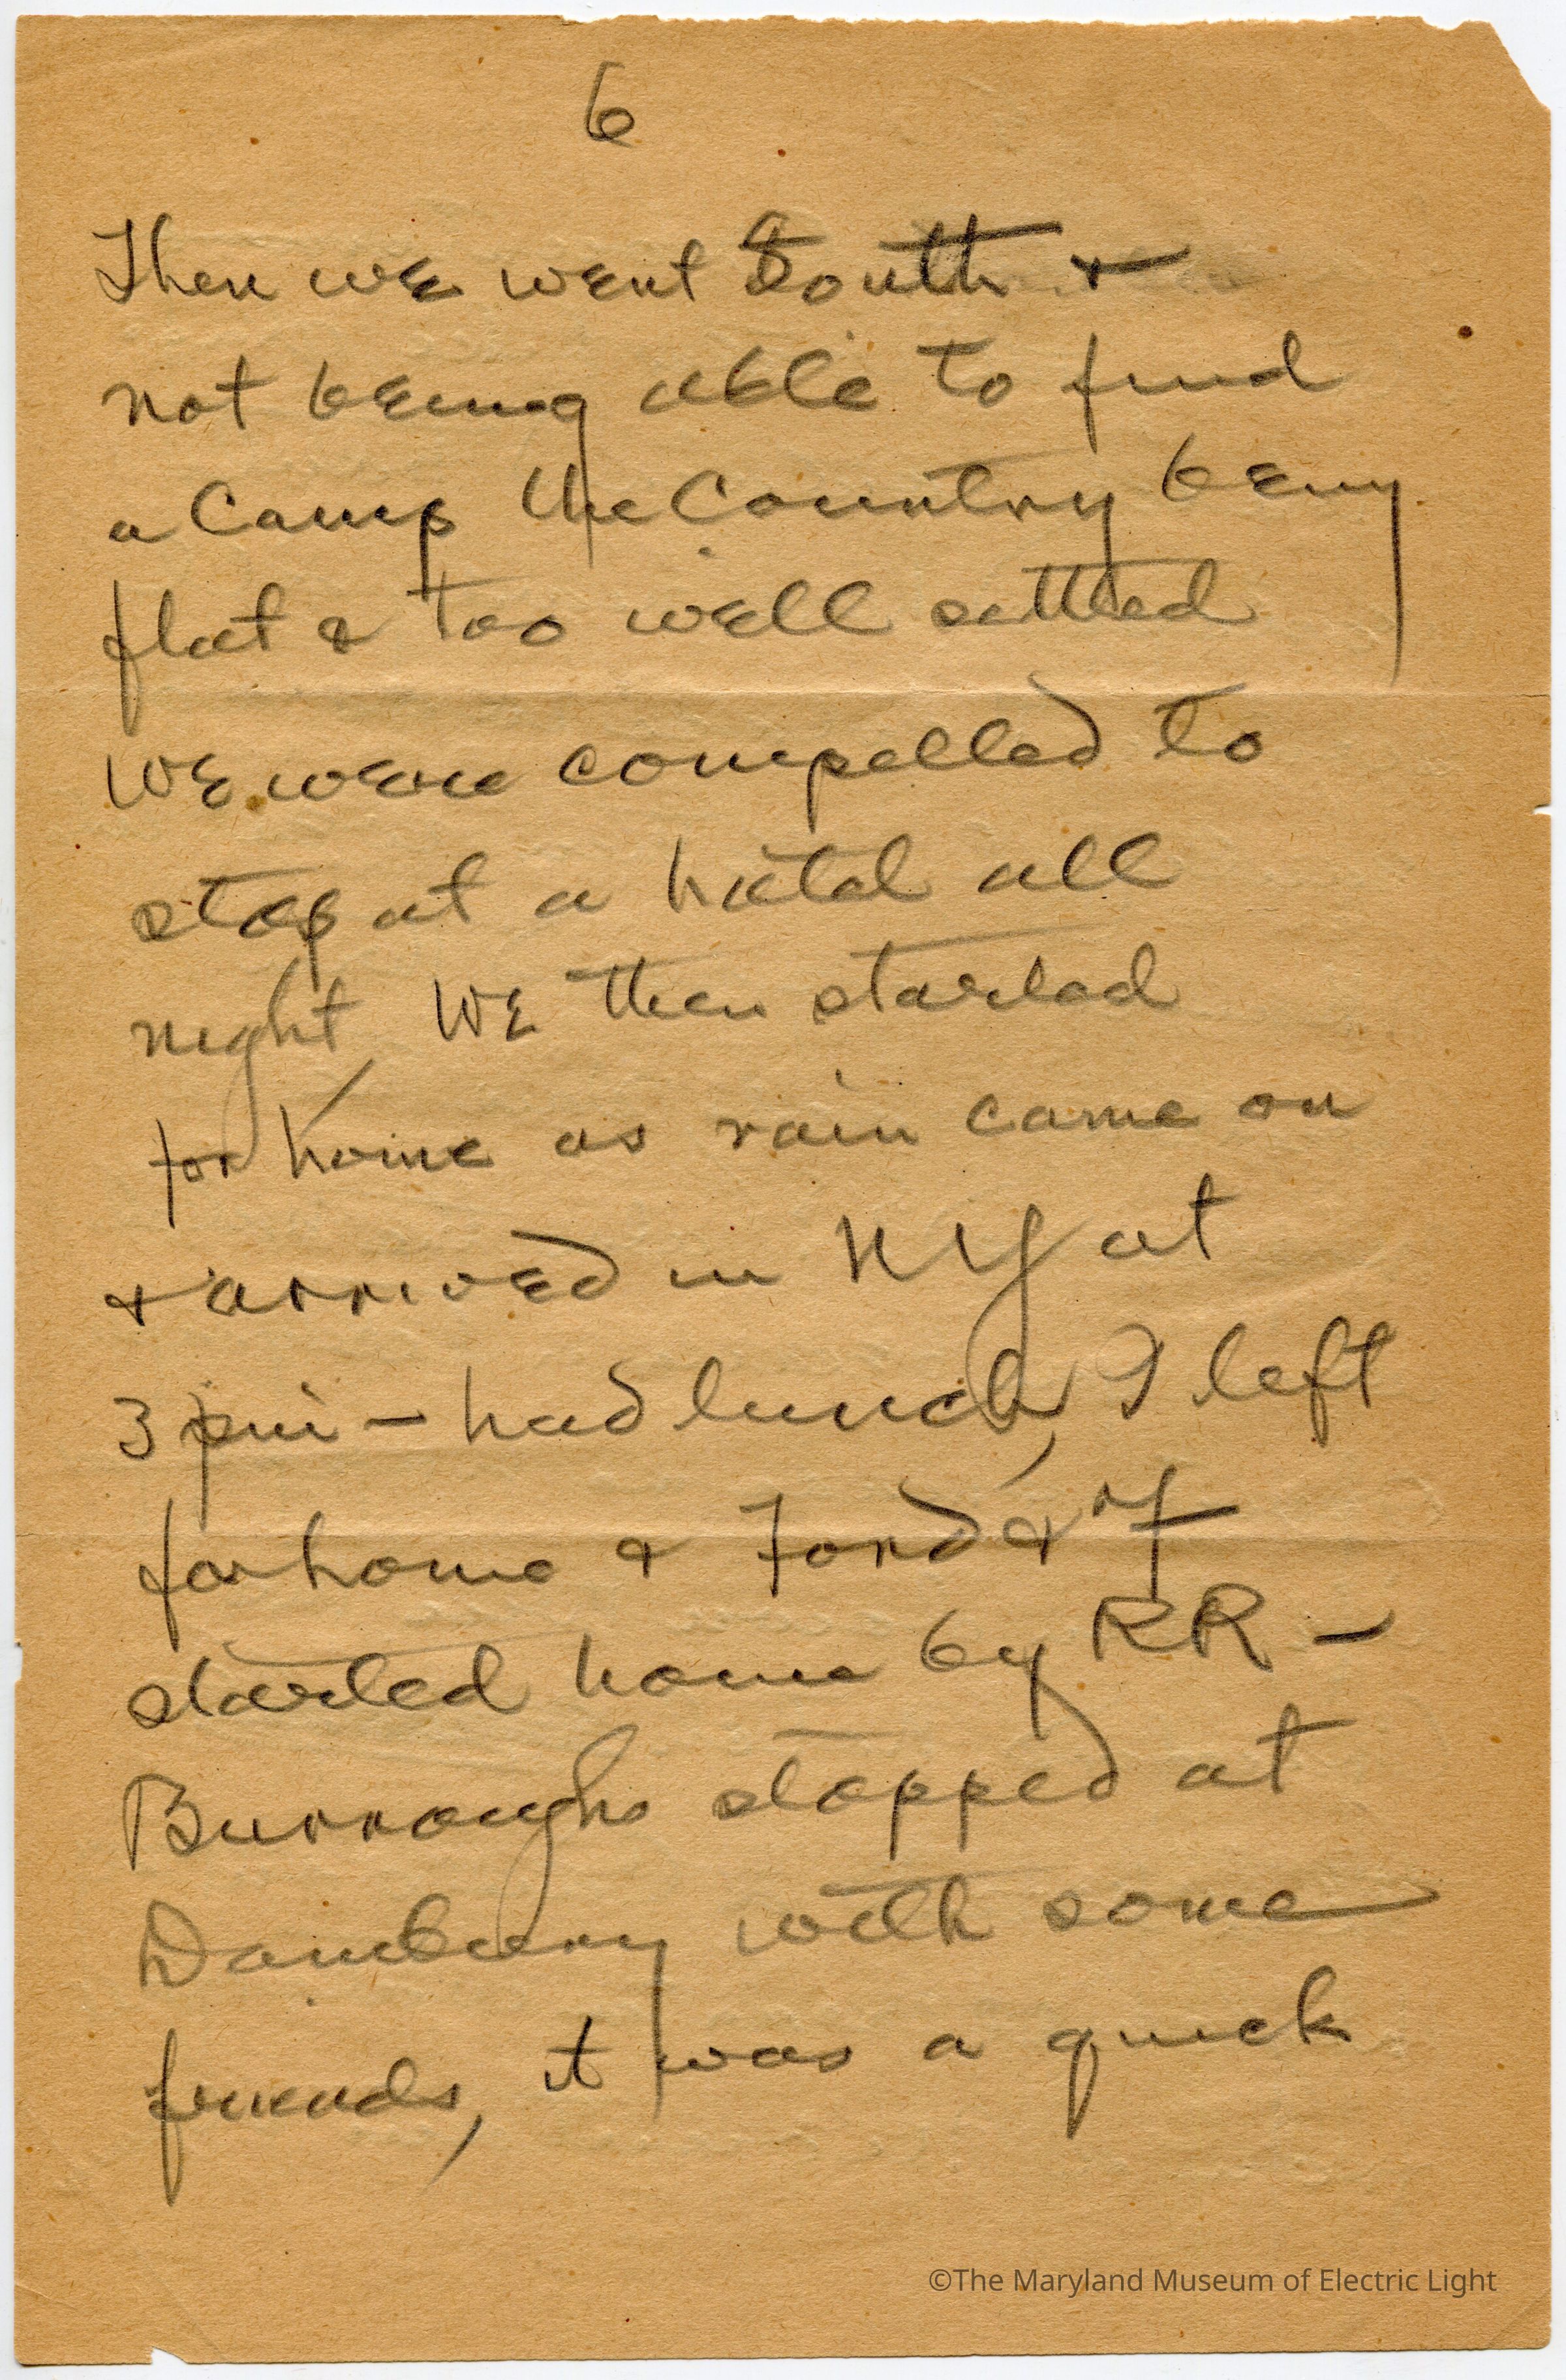 6
Then we went South &
not being able to find
a Camp the Country being
flat & too well settled
We were compelled to
stop at a hotel all
night, We then started
for home as rain came on
& arrived in NY at
3 pm - had lunch, I left
for home & Ford &
started home by RR -
Burroughs stopped at
Danbury with some
friends, it was a quick
©The Maryland Museum of Electric Light